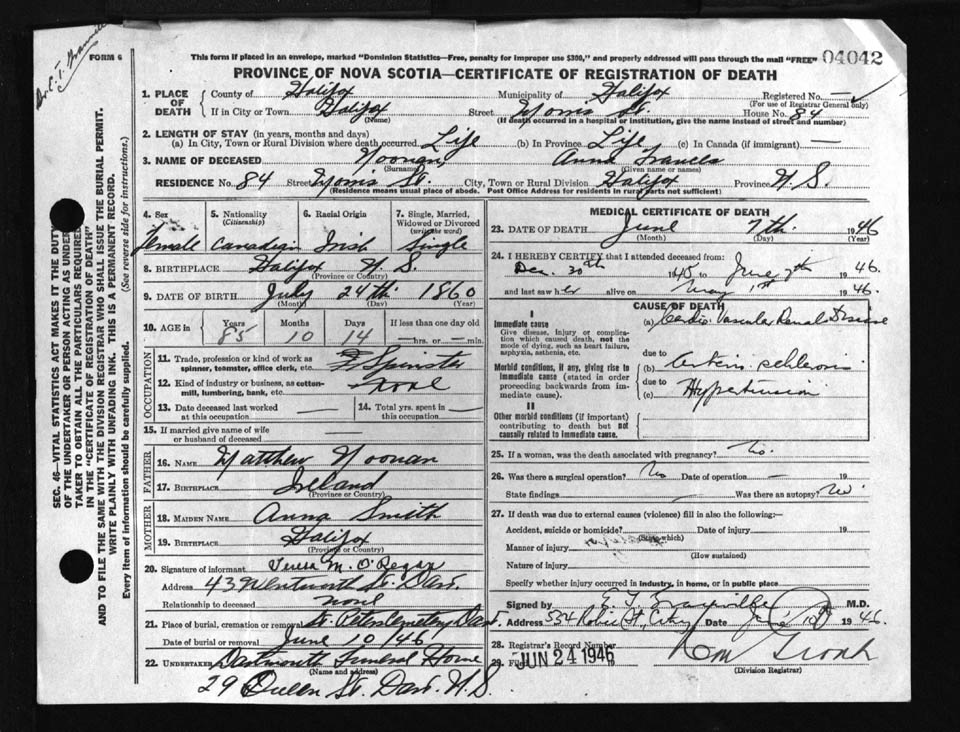 FORM 6
This form if placed in an envelope, marked "Dominion Statistics—Free, penalty for improper use $300," and properly addressed will pass through the mail "FREE"
04042
PROVINCE OF NOVA SCOTIA—CERTIFICATE OF REGISTRATION OF DEATH
1. PLACE OF DEATH { County of Halifax Municipality of Halifax Registered No. —
(For use of Registrar General only)
If in City or Town Halifax Street Morris St. House No. 84
(Name) (If death occurred in a hospital or institution, give the name instead of street and number)
2. LENGTH OF STAY (in years, months and days)
(a) In City, Town or Rural Division where death occurred Life (b) In Province Life (c) In Canada (if immigrant) —
3. NAME OF DECEASED Noonan, Anna Francis
(Surname) (Given name or names)
RESIDENCE No. 84 Street Morris St. City, Town or Rural Division Halifax Province N. S.
(Residence means usual place of abode. Post Office Address for residents in rural parts not sufficient)
4. Sex 5. Nationality (Citizenship) 6. Racial Origin 7. Single, Married, Widowed or Divorced (write the word)
Female Canadian Irish Single
8. BIRTHPLACE Halifax N. S.
(Province or Country)
9. DATE OF BIRTH July 24th 1860
(Month) (Day) (Year)
10. AGE in Years Months Days If less than one day old
85 10 14 —hrs. or —min.
OCCUPATION
11. Trade, profession or kind of work as spinner, teamster, office clerk, etc. Spinster
12. Kind of industry or business, as cotton-mill, lumbering, bank, etc. None
13. Date deceased last worked at this occupation — 14. Total yrs. spent in this occupation —
15. If married give name of wife or husband of deceased —
FATHER
16. NAME Matthew Noonan
17. BIRTHPLACE Ireland
(Province or Country)
MOTHER
18. MAIDEN NAME Anna Smith
19. BIRTHPLACE Halifax
(Province or Country)
20. Signature of informant Teresa M. O'Regan
Address 43 Wentworth St. Dart.
Relationship to deceased none
21. Place of burial, cremation or removal St. Peters Cemetery Dart.
Date of burial or removal June 10/46
22. UNDERTAKER Dartmouth Funeral Home
(Name and address)
29 Queen St. Dart. N. S.
MEDICAL CERTIFICATE OF DEATH
23. DATE OF DEATH June 7th 1946
(Month) (Day) (Year)
24. I HEREBY CERTIFY that I attended deceased from:
Dec. 30th 1945 to June 7th 1946.
and last saw her alive on May 1st 1946.
CAUSE OF DEATH
I
Immediate cause (a) Cardio Vascular Renal Disease
Give disease, injury or complication which caused death, not the mode of dying, such as heart failure, asphyxia, asthenia, etc.
due to
Morbid conditions, if any, giving rise to immediate cause (stated in order proceeding backwards from immediate cause).
(b) Arterio sclerosis
due to
(c) Hypertension
II
Other morbid conditions (if important) contributing to death but not causally related to immediate cause.
25. If a woman, was the death associated with pregnancy? No.
26. Was there a surgical operation? No Date of operation — 19
State findings — Was there an autopsy? No
27. If death was due to external causes (violence) fill in also the following:—
Accident, suicide or homicide? Date of injury 19
(State which)
Manner of injury
(How sustained)
Nature of injury
Specify whether injury occurred in industry, in home, or in public place
Signed by M.D.
Address 534 Robie St. City Date 1946.
28. Registrar's Record Number
29. Filed JUN 24 1946
(Division Registrar)
SEC. 46—VITAL STATISTICS ACT MAKES IT THE DUTY OF THE UNDERTAKER OR PERSON ACTING AS UNDERTAKER TO OBTAIN ALL THE PARTICULARS REQUIRED IN THE "CERTIFICATE OF REGISTRATION OF DEATH" AND TO FILE THE SAME WITH THE DIVISION REGISTRAR WHO SHALL ISSUE THE BURIAL PERMIT.
WRITE PLAINLY WITH UNFADING INK. THIS IS A PERMANENT RECORD.
Every item of information should be carefully supplied. (See reverse side for instructions.)